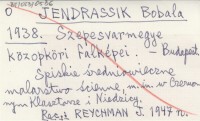 O JENDRASSIK Bobala
1938. Szepesvarmegye
középkori falképei. .. Budapest.
Spiskie średniowieczne
malarstwo ścienne, m.in. w Czerwo
nym Klasztorze i Niedzicy.
Recez REYCHMAN J. 1947 r.